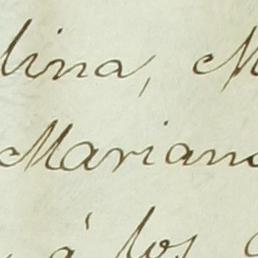 lina, M
Mariano
á los